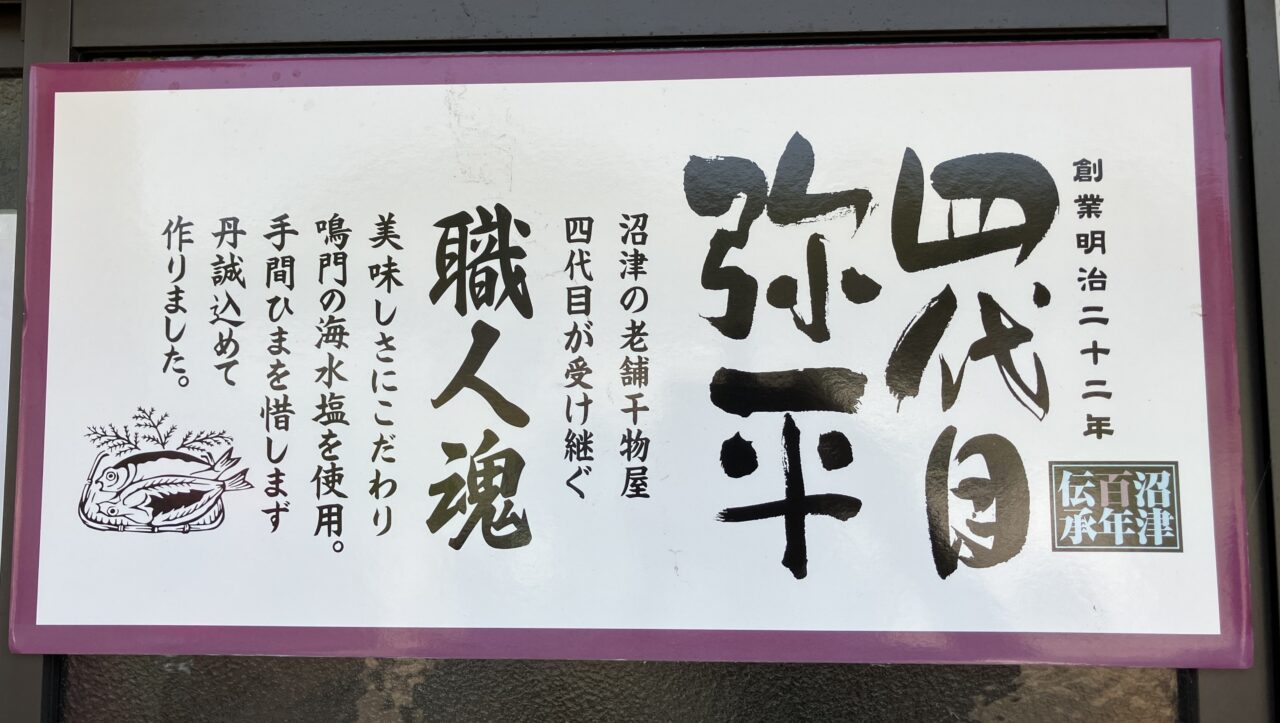 創業明治二十二年
沼津
百年
伝承
四代目
弥平
沼津の老舗干物屋
四代目が受け継ぐ
職人魂
美味しさにこだわり
鳴門の海水塩を使用。
手間ひまを惜しまず
丹誠込めて
作りました。